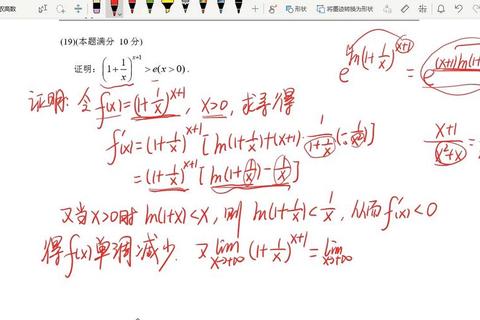 形状
将墨迹转换为形状
(19)(本题满分 10 分)
证明:(1+1/x)^{x+1}>e(x>0).
e^{ln(1+1/x)^{x+1}} = e^{(x+1)ln(1+
证明:令f(x)=(1+1/x)^{x+1}, x>0, 求导得
f'(x)=(1+1/x)^{x+1}[ln(1+1/x)+(x+1)·1/(1+1/x)(-1/x²)]
(x+1)/(x²+x) =
=(1+1/x)^{x+1}[ln(1+1/x)-1/x]
又当x>0时 ln(1+x)<x, 则 ln(1+1/x)<1/x, 从而f'(x)<0
得f(x)单调减少. 又lim_{x→+∞}(1+1/x)^{x+1}=lim_{x→+∞}